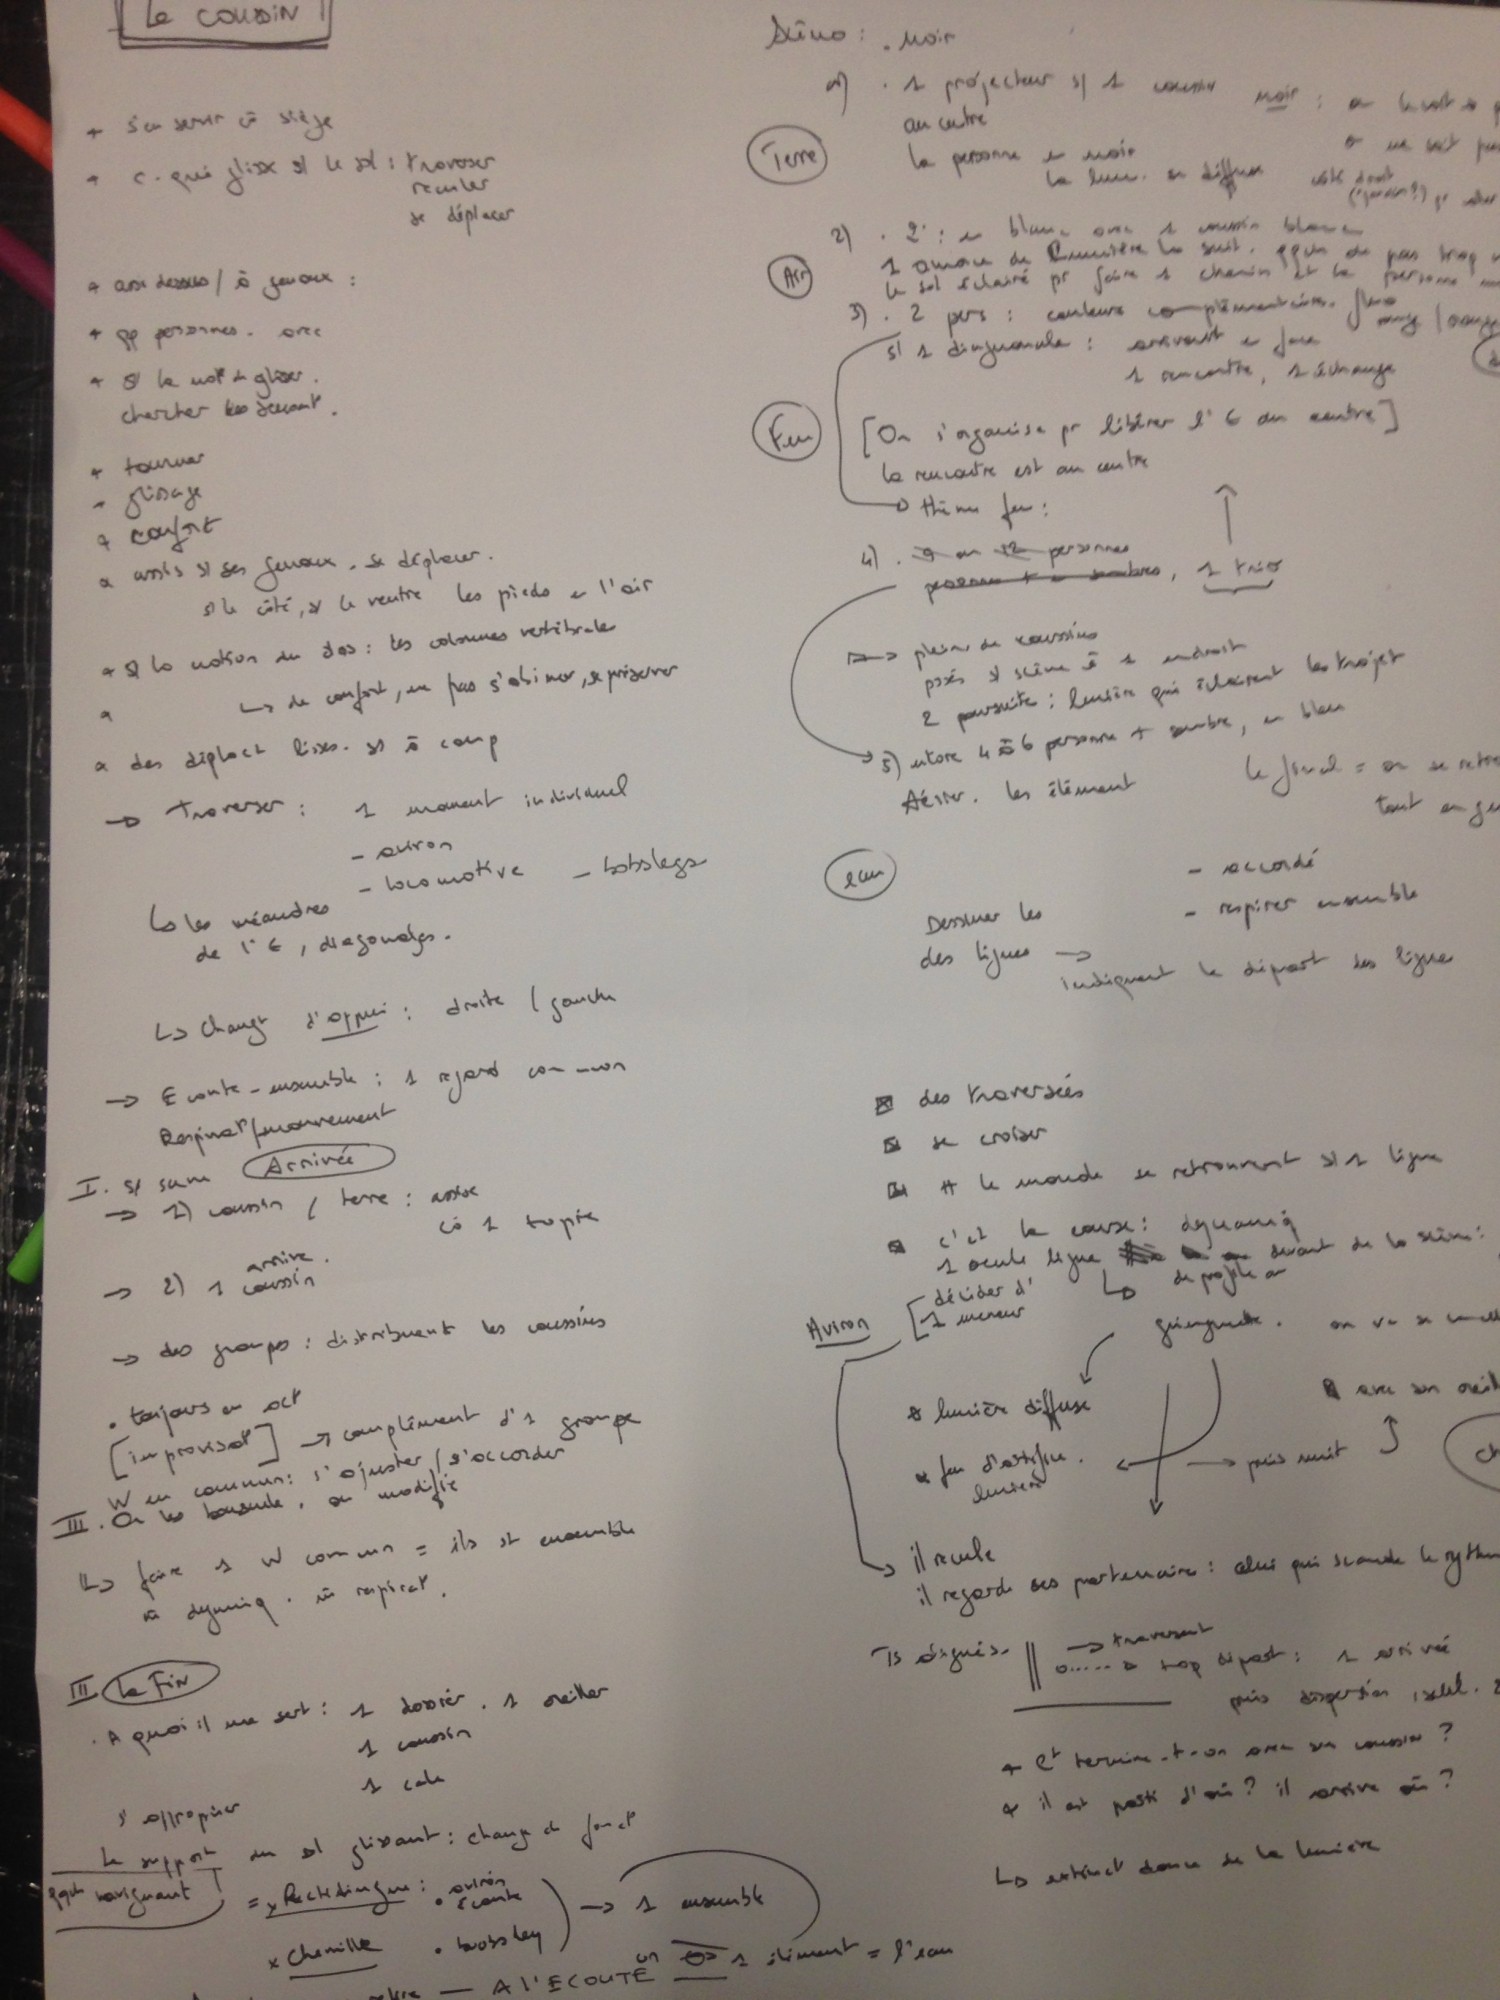 Le coussin
+ s'en servir cô siège
+ c. qui glisse s/ le sol : traverser
reculer
se déplacer
+ au dessus / à genoux :
+ qq personnes. avec
+ s/ la not° de glisser.
chercher
+ tourner
- glissage
+ confort
assis s/ ses genoux. se déplacer.
s/ le côté, s/ le ventre les pieds en l'air
+ s/ la notion du dos : les colonnes vertébrales
↳ de confort, ne pas s'abimer, se préserver
des déplact lisses. s/s à coup
→ Traverser : 1 moment individuel
- aviron
- locomotive - bobslegs
↳ les méandres
de l'E, diagonales.
↳ Changt d'appui : droite / gauche
→ Ecoute - ensemble : 1 regard commun
Respirat°/mouvement
I. s/ scène Arrivée
→ 1) coussin / terre : assise
cô 1 tapis
→ 2) 1 coussin arrive.
→ des groupes : distribuent les coussins
• toujours en act°
[improvisat°] → complément d'1 groupe
W en commun : s'ajuster / s'accorder
III. On les bouscule. on modifie
↳ faire 1 W commun = ils st ensemble
m̂ dynamiq. m̂ respirat°.
III La Fin
. A quoi il me sert : 1 dossier. 1 oreiller
1 coussin
1 cale
s'approprier
le support du sol glissant : change de fonct°
naviguant
= x Rectiligne : • aviron
• écoute
x Chenille • bobsleg
→ 1 ensemble
— A L'ECOUTE 1 élément = l'eau
Scéno : . Noir
1) . 1 projecteur s/ 1 coussin noir : on le voit
au centre
Terre
la personne en noir
la lum. en diffuse côté droit
2) . 2° : en blanc avec 1 coussin blanc
Air
1 source de lumière la suit. qqun de pas trop
le sol éclairé pr faire 1 chemin et la personne
3) . 2 pers : couleurs complémentaires. fluo
s/ 1 diagonale : arrivant en face
1 rencontre, 1 échange
Feu
[On s'organise pr libérer l'E du centre]
la rencontre est au centre
→ thème feu :
4) . 9 ou 12 personnes
, 1 trio
→ pleins de coussins
posés s/ scène à 1 endroit
2 poursuite : lumière qui éclairent les trajet
5) encore 4 à 6 personne + sombre, en bleu
les élément
le final = on se
tout en
eau
- accordé
- respirer ensemble
Dessiner les
des lignes →
indiquent le départ des lignes
des traversées
se croiser
tt le monde se retrouvent s/ 1 ligne
c'est la course : dynamiq
1 seule ligne devant de la scène :
↳ de profile
Aviron
[décider d'
1 meneur
guinguette. on va se
* lumière diffuse
* feu d'artifice.
lumière
→ puis nuit
avec son oreill
il recule
il regarde ses partenaire : celui qui scande le rythm
Ts alignés. → traversent
top départ : 1 arrivée
puis dispersion, isolt.
+ Ct termine-t-on avec son coussin ?
+ il est parti d'où ? il arrive où ?
↳ extinct° douce de la lumière